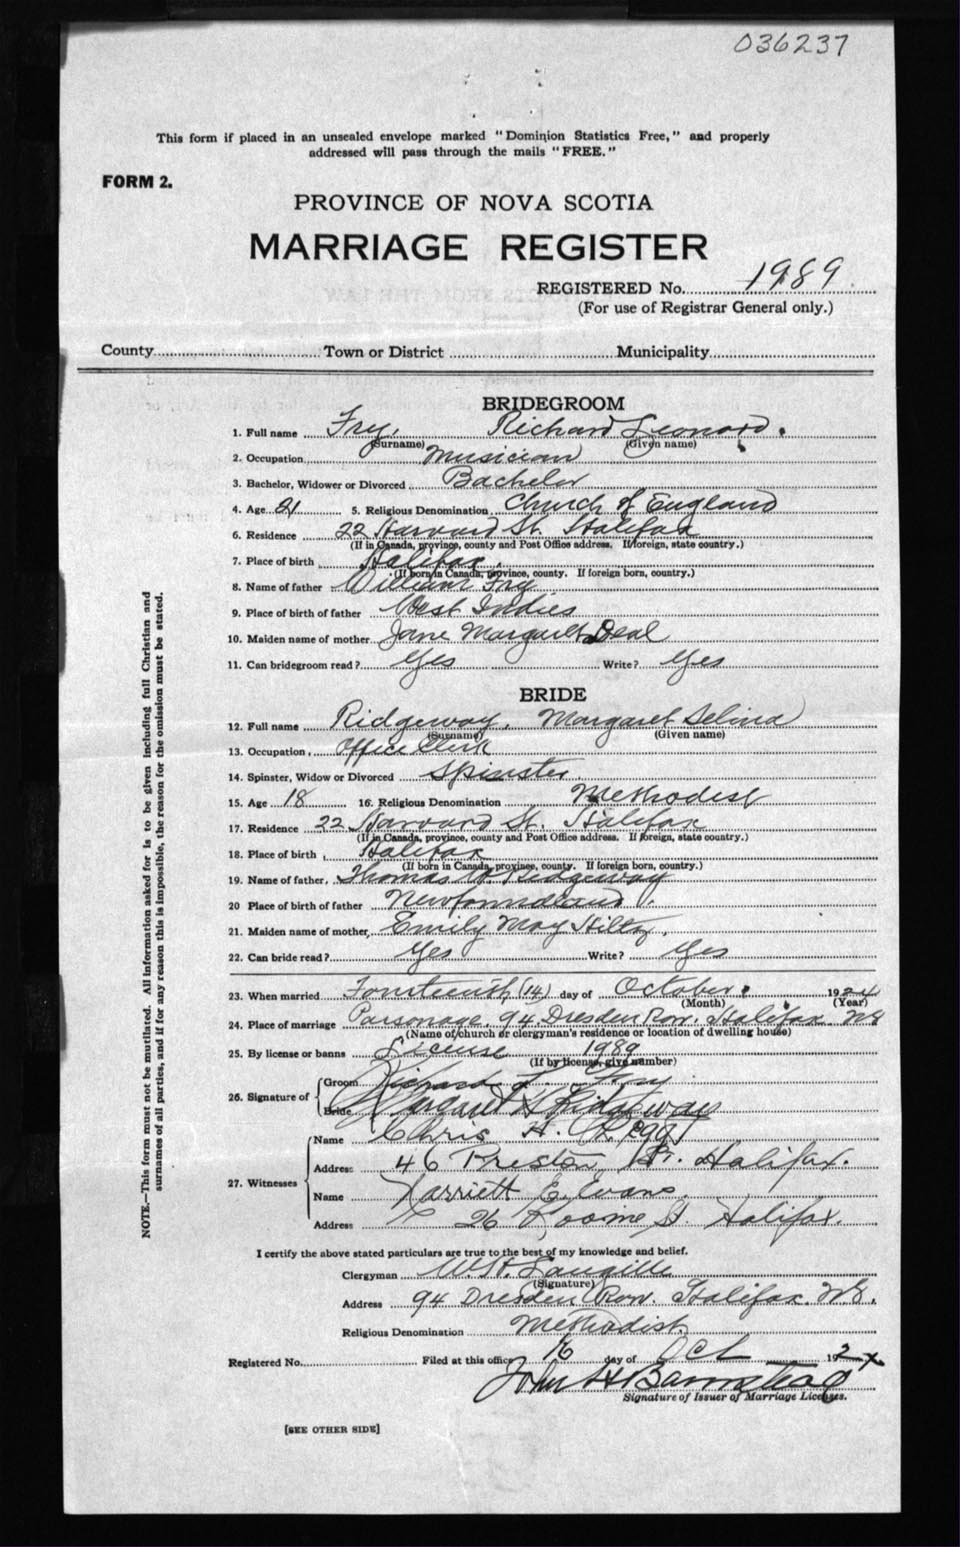 036237
This form if placed in an unsealed envelope marked "Dominion Statistics Free," and properly
addressed will pass through the mails "FREE."
FORM 2.
PROVINCE OF NOVA SCOTIA
MARRIAGE REGISTER
REGISTERED No. 1989
(For use of Registrar General only.)
County Town or District Municipality
BRIDEGROOM
1. Full name Fry, Richard Leonard.
(Surname) (Given name)
2. Occupation Musician
3. Bachelor, Widower or Divorced Bachelor
4. Age 21 5. Religious Denomination Church of England
6. Residence 22 Harvard St. Halifax
(If in Canada, province, county and Post Office address. If foreign, state country.)
7. Place of birth Halifax
(If born in Canada, province, county. If foreign born, country.)
8. Name of father William Fry
9. Place of birth of father West Indies
10. Maiden name of mother Jane Margaret Deal
11. Can bridegroom read? Yes Write? Yes
BRIDE
12. Full name Ridgeway, Margaret Selina
(Surname) (Given name)
13. Occupation Office Clerk
14. Spinster, Widow or Divorced Spinster
15. Age 18 16. Religious Denomination Methodist
17. Residence 22 Harvard St. Halifax
(If in Canada, province, county and Post Office address. If foreign, state country.)
18. Place of birth Halifax
(If born in Canada, province, county. If foreign born, country.)
19. Name of father, Thomas Ridgeway
20 Place of birth of father Newfoundland
21. Maiden name of mother, Emily May Hiltz
22. Can bride read? Yes Write? Yes
23. When married Fourteenth (14) day of October 1924
(Month) (Year)
24. Place of marriage Parsonage, 94 Dresden Row. Halifax NS
(Name of church or clergyman's residence or location of dwelling house)
25. By license or banns License 1989
(If by license, give number)
26. Signature of
Groom Richard L. Fry
Bride Margaret S Ridgeway
27. Witnesses
Name Chris H.
Address 46 Preston St. Halifax.
Name Harriett E. Evans
Address 26 Roome St. Halifax.
I certify the above stated particulars are true to the best of my knowledge and belief.
Clergyman W. H. Langille
(Signature)
Address 94 Dresden Row. Halifax. N.S.
Religious Denomination Methodist
Registered No. Filed at this office 16 day of Oct 192
John H Barnstead
Signature of Issuer of Marriage Licenses.
[SEE OTHER SIDE]
NOTE.—This form must not be mutilated. All information asked for is to be given including full Christian and
surnames of all parties, and if for any reason this is impossible, the reason for the omission must be stated.